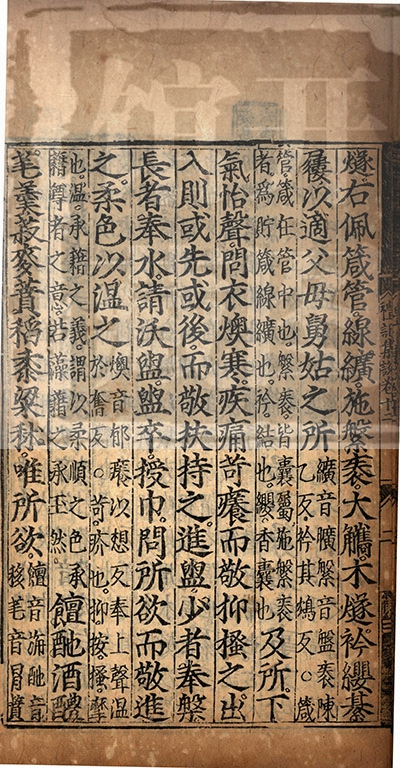 燧右佩箴管線纊施縏袠大觿木燧衿纓綦
屨以適父母舅姑之所纊音曠縏音盤袠陳乙反衿其鴆反○箴
管箴在管中也縏袠皆囊屬施縏袠者爲貯箴線纊也衿結也纓香囊也及所下
氣怡聲問衣燠寒疾痛苛癢而敬抑搔之出
入則或先或後而敬扶持之進盥少者奉槃
長者奉水請沃盥盥卒授巾問所欲而敬進
之柔色以溫之燠音郁癢以想反奉上聲溫於奮反○苛疥也抑按搔摩
也溫承藉之義謂以柔順之色承藉尊者之意若藻藉之承玉然饘酏酒醴
芼羹菽麥蕡稻黍粱秫唯所欲饘音旃酏音移芼音冒蕡